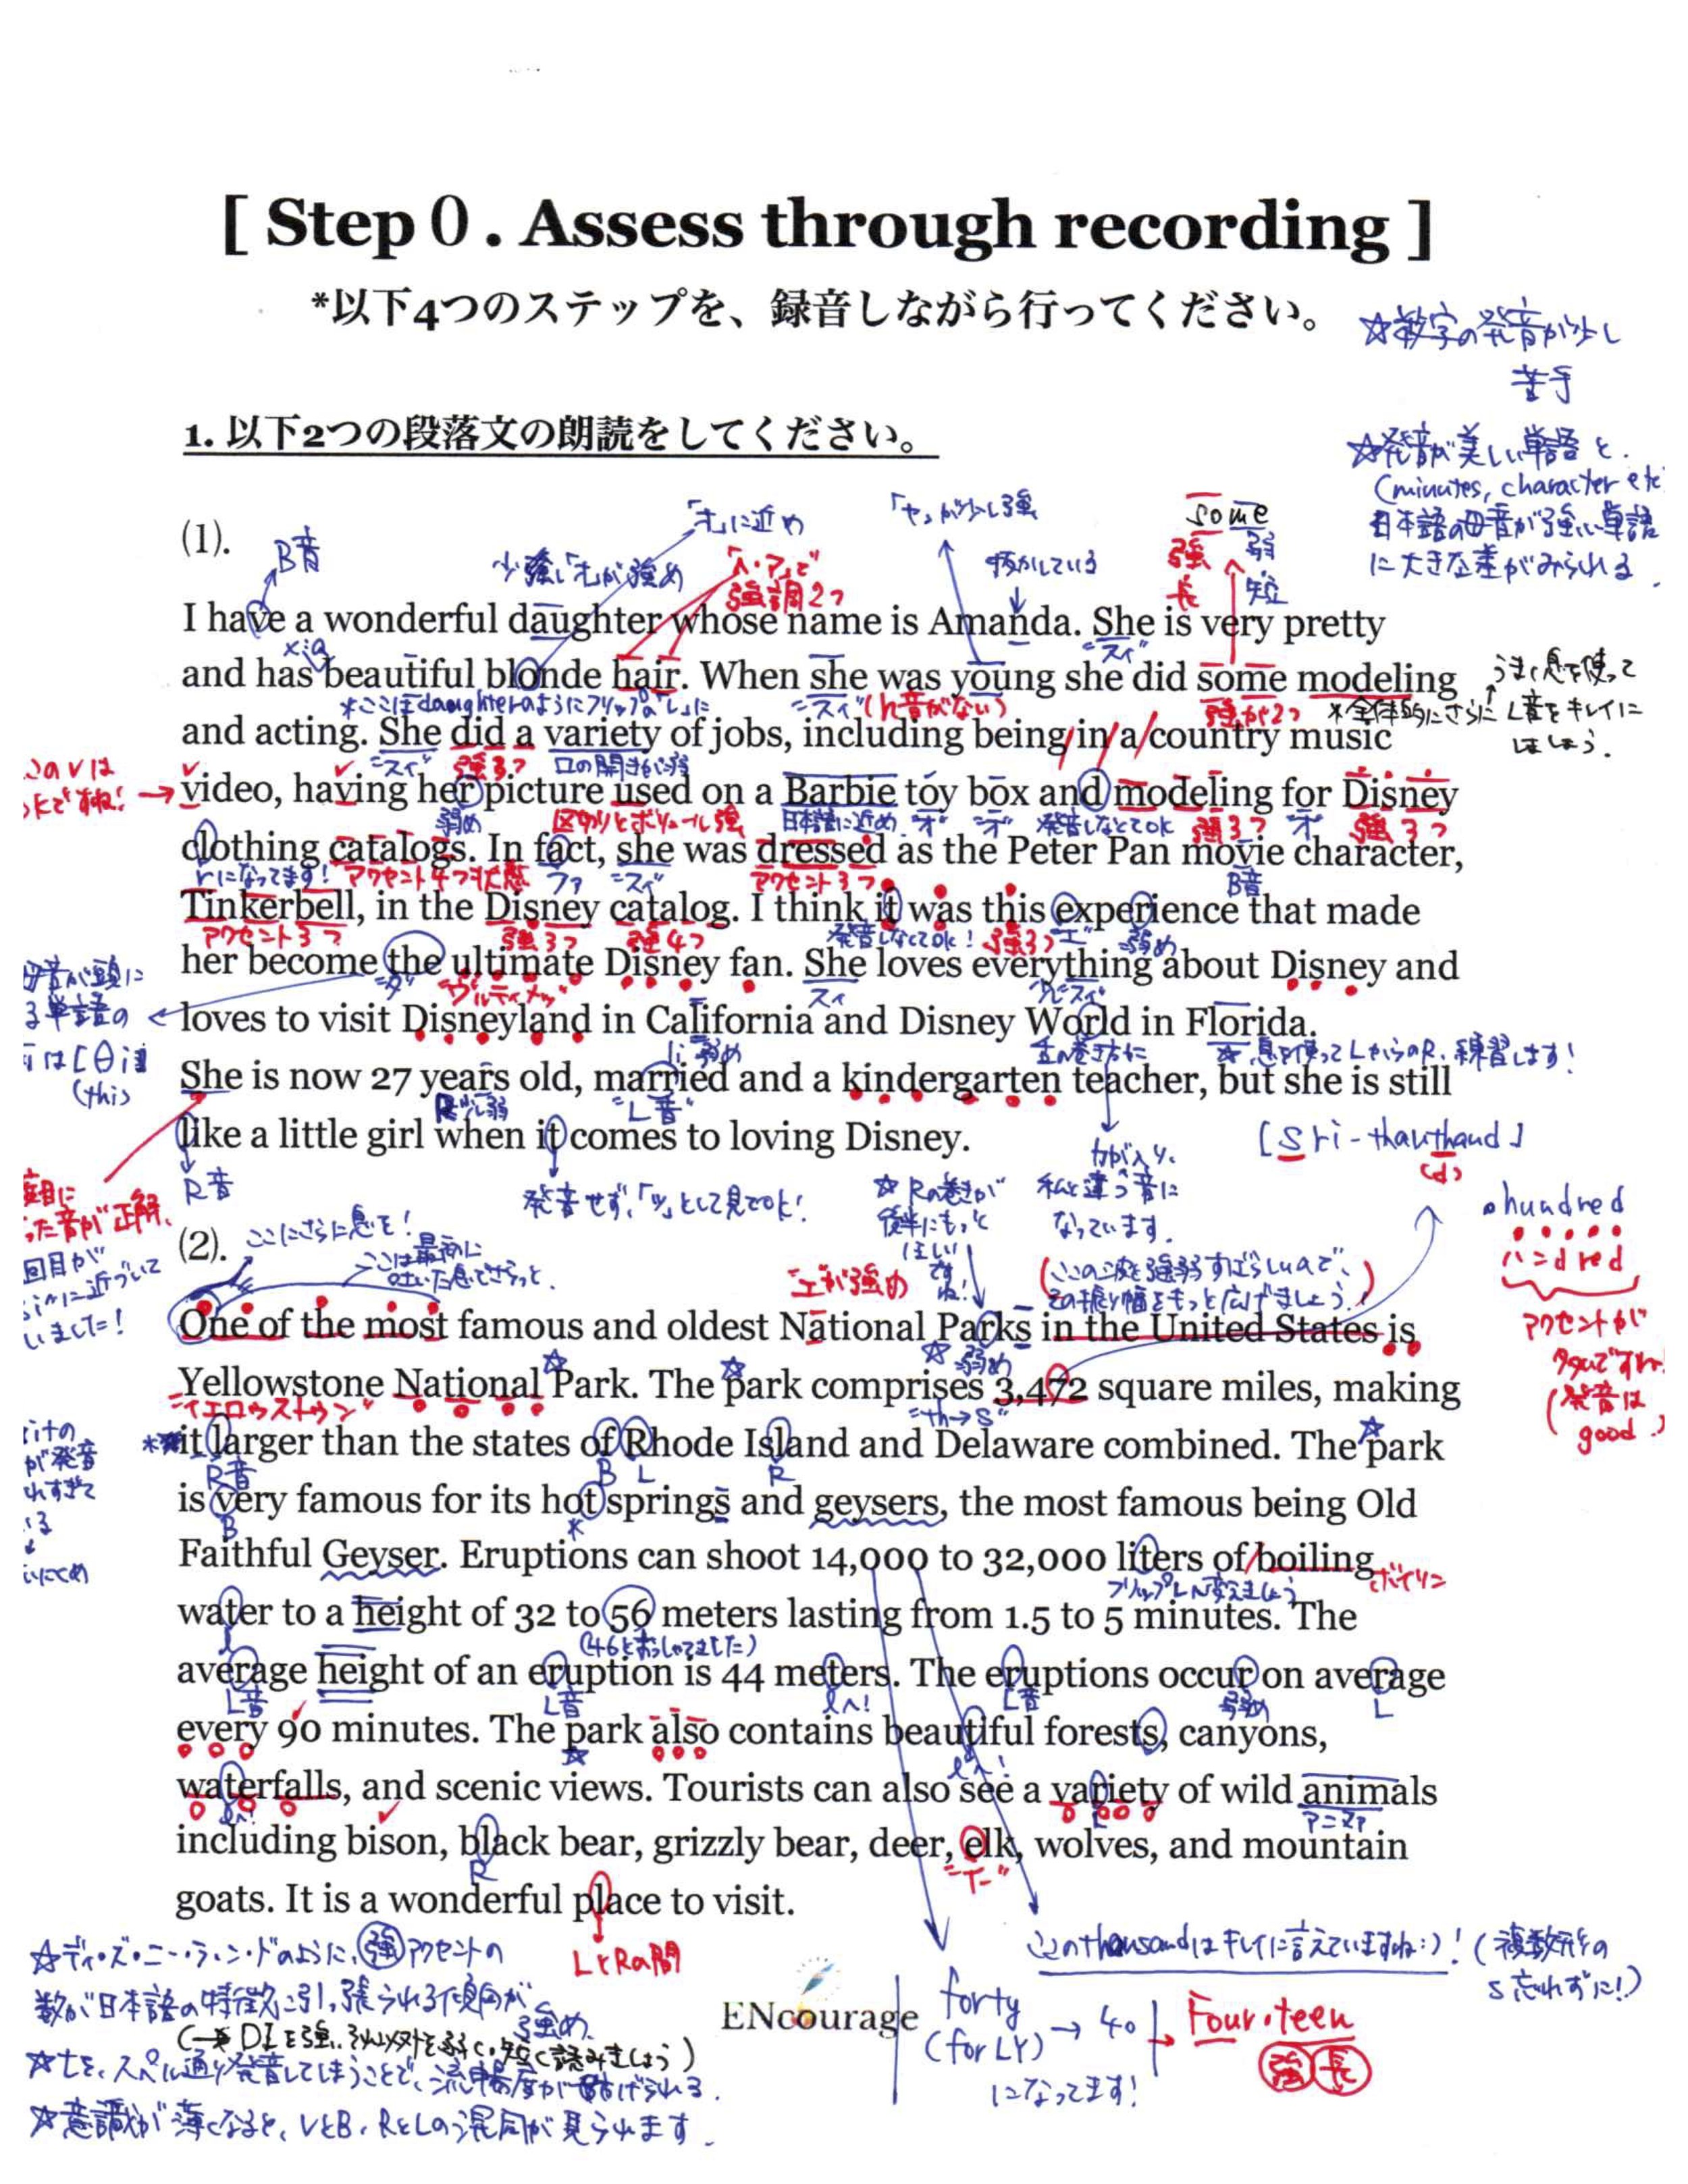 [ Step 0 . Assess through recording ]
*以下4つのステップを、録音しながら行ってください。
☆数字の発音が少し
苦手
1. 以下2つの段落文の朗読をしてください。
☆発音が美しい単語と、
(minutes, character etc
日本語の母音が強い単語
に大きな差がみられる。
(1).
B音
「オ」に近め
「ヤ」が少し強
some
強 弱
長 短
強調2つ
I have a wonderful daughter whose name is Amanda. She is very pretty
"スィ"
and has beautiful blonde hair. When she was young she did some modeling
*ここはdaughterのようにフリップの「L」に
"スィ" (h音がない)
強が2つ
うまく息を使って
L音をキレイに
しましょう。
and acting. She did a variety of jobs, including being in a country music
"スィ" 強3つ 口の開きが弱
video, having her picture used on a Barbie toy box and modeling for Disney
弱め 区切りとボリューム強 日本語に近め "オ" "オ" 発音しなくてOK 強3つ "オ" 強3つ
clothing catalogs. In fact, she was dressed as the Peter Pan movie character,
rになってます! アクセント4つ状態 ファ "スィ" アクセント3つ B音
Tinkerbell, in the Disney catalog. I think it was this experience that made
アクセント3つ 強3つ 強4つ 発音しなくてOK! 強3つ "エ" 弱め
her become the ultimate Disney fan. She loves everything about Disney and
"ダ" "ウルティメッ" スィ
loves to visit Disneyland in California and Disney World in Florida.
li 弱め 舌の巻き方に ☆息を使ってLからのR、練習します!
She is now 27 years old, married and a kindergarten teacher, but she is still
R少し弱 "L音"
like a little girl when it comes to loving Disney.
R音
発音せず、「ッ」として見てOK!
力が入り、
私と違う音に
なっています。
[Sri-thauthand]
(d)
☆Rの巻きが
後半にもっと
ほしい
です
ね!
hundred
ハンdred
アクセントが
(発音は
good.)
(2).
ここにさらに息を!
ここは最初に
吐いた息でさらっと。
"エ"が強め
(ここの波と強弱すばらしいので、
その振り幅をもっと広げましょう!)
One of the most famous and oldest National Parks in the United States is
☆弱め
Yellowstone National Park. The park comprises 3,472 square miles, making
"イエロウストウン" "th→S"
it larger than the states of Rhode Island and Delaware combined. The park
R音 B L R
is very famous for its hot springs and geysers, the most famous being Old
B
Faithful Geyser. Eruptions can shoot 14,000 to 32,000 liters of boiling
フリップLへ変えましょう
ボイリン
water to a height of 32 to 56 meters lasting from 1.5 to 5 minutes. The
(46とおっしゃてました)
average height of an eruption is 44 meters. The eruptions occur on average
L音 L音 lへ! L音 弱め L
every 90 minutes. The park also contains beautiful forests, canyons,
lへ!
waterfalls, and scenic views. Tourists can also see a variety of wild animals
lへ! L
including bison, black bear, grizzly bear, deer, elk, wolves, and mountain
R
goats. It is a wonderful place to visit.
LとRの間
☆ディ・ズ・ニー・ラ・ン・ドのように、強アクセントの
数が日本語の特徴に引っ張られる傾向が
強め。
(→DIを強、それ以外を弱く・短く読みましょう)
☆tを、スペル通り発音してしまうことで、流暢度が妨げられる。
☆意識が薄くなると、VとB、RとLの混同が見られます。
ENcourage
forty
(forLY) → 40
になってます!
Four・teen
強 長
ここのthousandはキレイに言えていますね:)! (複数形の
S忘れずに!)